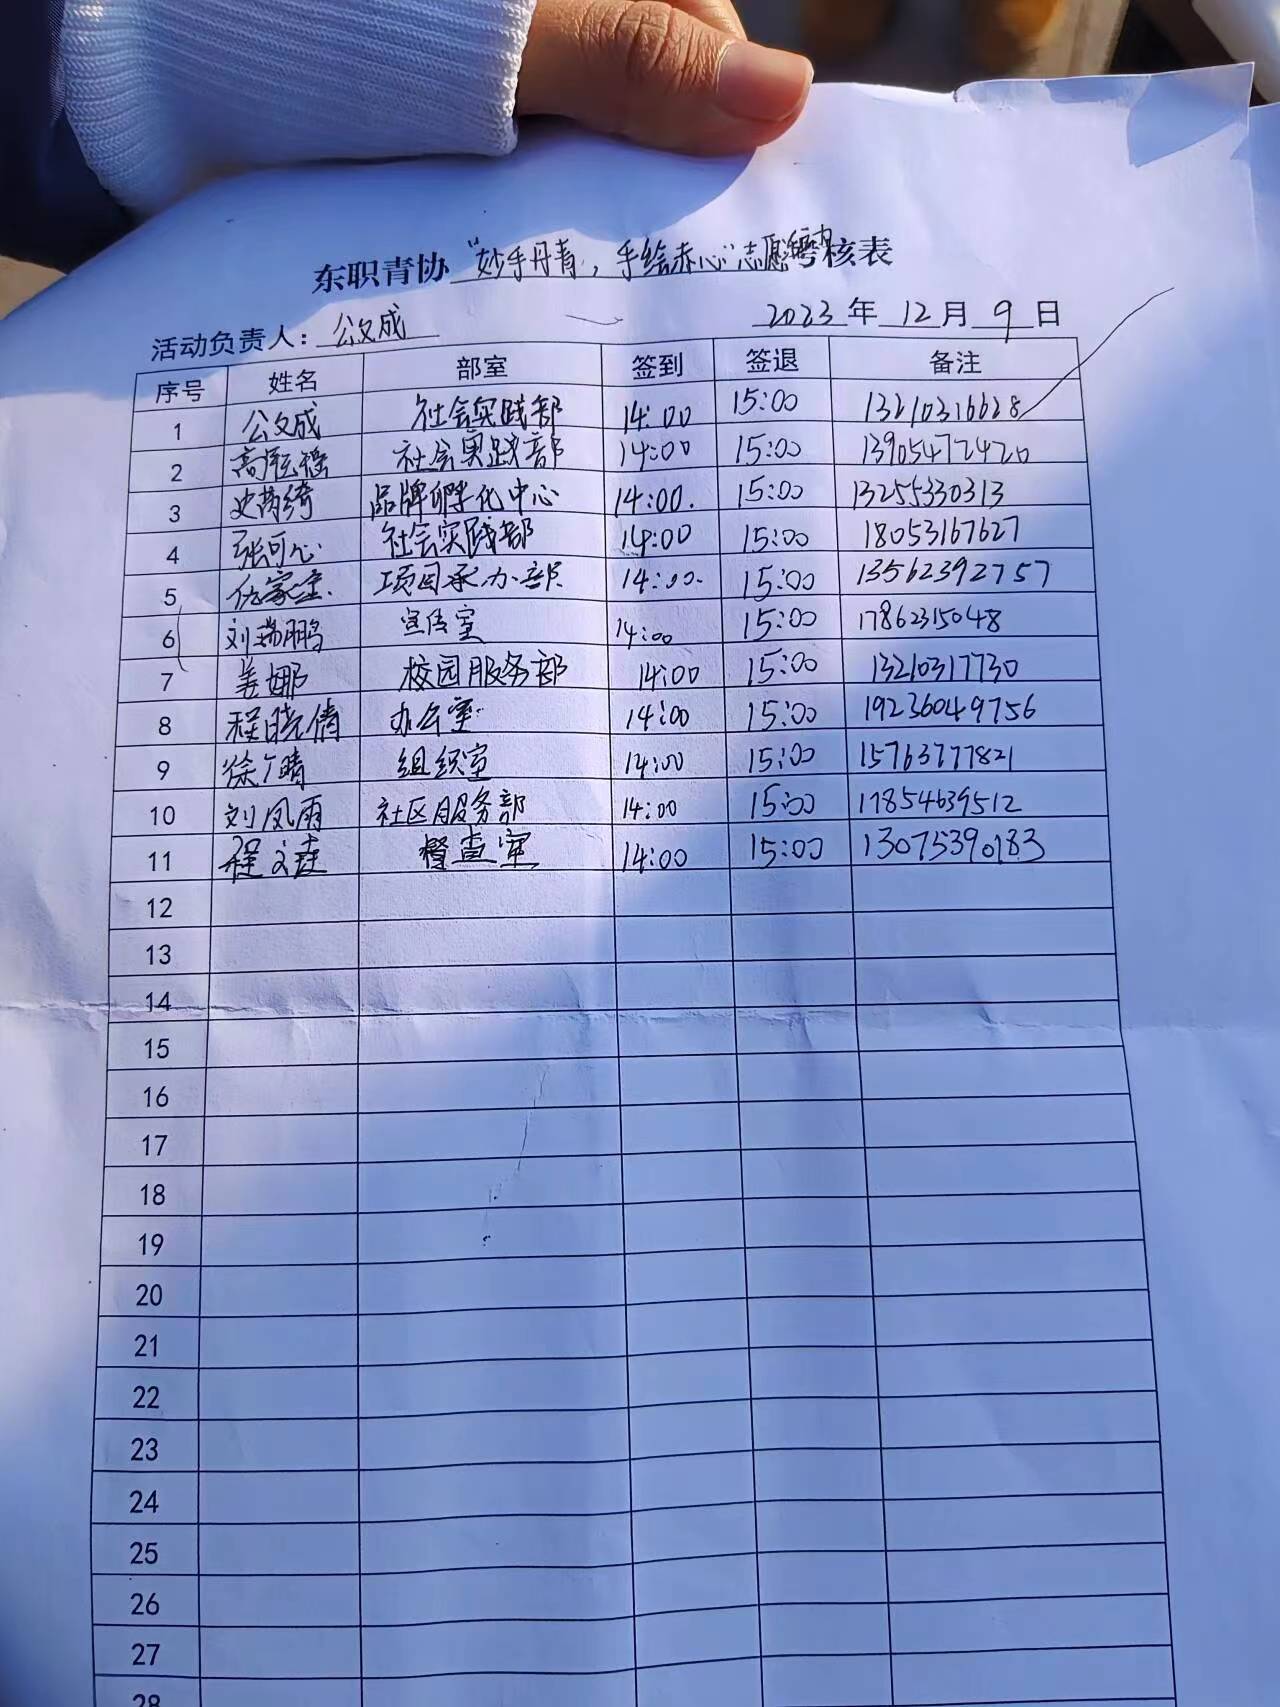 东职青协"妙手丹青，手绘赤心"志愿 考核表
活动负责人：公文成 2023年12月9日
序号 姓名 部室 签到 签退 备注
1 公文成 社会实践部 14:00 15:00 13210316628
2 高 社会实践部 14:00 15:00 13905472420
3 史 绮 品牌孵化中心 14:00. 15:00 13255330313
4 张可心 社会实践部 14:00 15:00 18053167627
5 家 项目承办部 14:00. 15:00 13562392757
6 刘瑞鹏 宣传室 14:00 15:00 17862315048
7 姜娜 校园服务部 14:00 15:00 13210317730
8 程晓倩 办公室 14:00 15:00 19236049756
9 徐 晴 组织室 14:00 15:00 15763777821
10 刘凤雨 社区服务部 14:00 15:00 17854639512
11 程文 督查室 14:00 15:00 13075390183
12
13
14
15
16
17
18
19
20
21
22
23
24
25
26
27
28